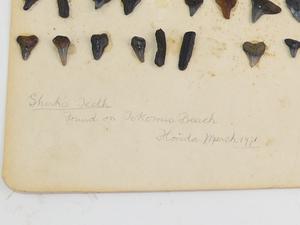 Shark's Teeth
Found on Nokomis Beach
Florida March 1971